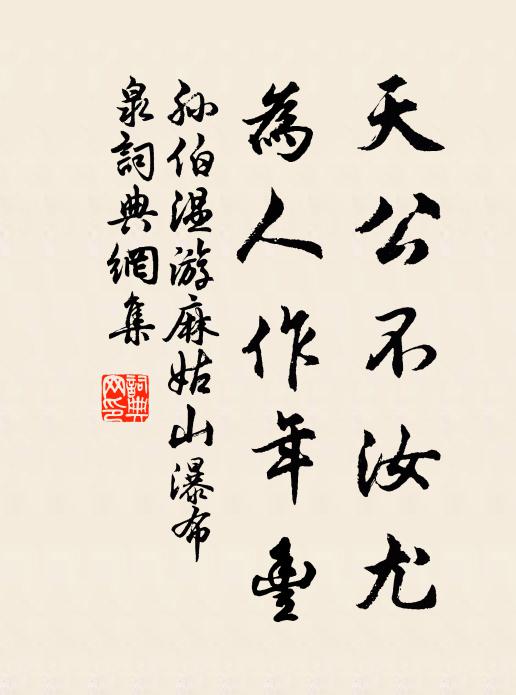 天公不汝尤
為人作年豊
孫伯温游麻姑山瀑布
泉詞典網集
詞典
网印